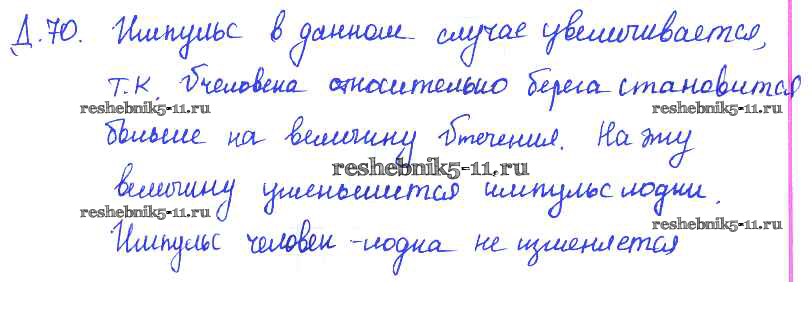 Д.70. Импульс в данном случае увеличивается,
т.к. υ человека относительно берега становится
reshebnik5-11.ru reshebnik5-11.ru
больше на величину υ течения. На эту
reshebnik5-11.ru
величину уменьшится импульс лодки.
reshebnik5-11.ru reshebnik5-11.ru
Импульс человек-лодка не изменяется